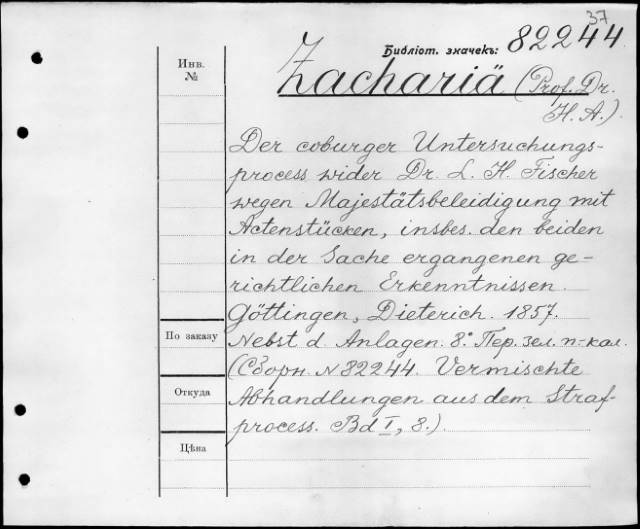 37
Библіот. значекъ: 82244
Zachariä (Prof. Dr.
H. A.).
Инв.
№
Der coburger Untersuchungs-
process wider Dr. L. H. Fischer
wegen Majestätsbeleidigung mit
Actenstücken, insbes. den beiden
in der Sache ergangenen ge-
richtlichen Erkenntnissen.
Göttingen, Dieterich. 1857.
По заказу
Nebst d. Anlagen. 8° Пер. зел. п-кал.
(Сборн. N 82244. Vermischte
Откуда
Abhandlungen aus dem Straf-
process. Bd I, 8.).
Цѣна